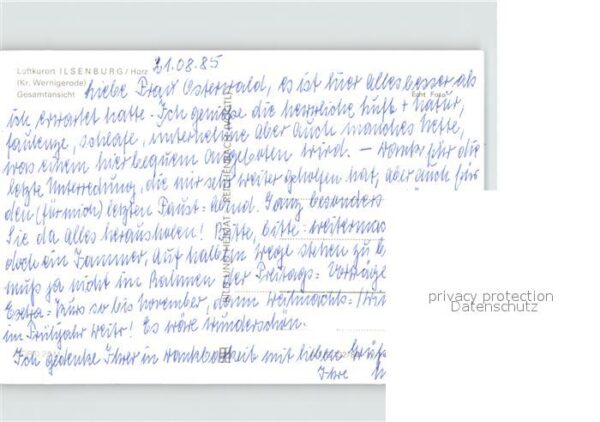 21.08.85
Luftkurort ILSENBURG/Harz
(Kr. Wernigerode)
Gesamtansicht
Liebe Frau Osterwald, es ist hier alles besser als
Echt Foto
ich erwartet hatte. Ich genieße die herrliche Luft + Natur,
faulenze, schlafe, unternehme aber auch manches Nette,
was einem hier bequem angeboten wird. – Danke für die
letzte Unterredung, die mir sehr weiter geholfen hat, aber auch für
den (für mich) letzten Faust=abend. Ganz besonders
Sie da alles herausholen! Bitte, bitte weitermac
doch ein Jammer, auf halbem Wege stehen zu b
muß ja nicht im Rahmen der Freitags= Vorträge
Extra= Kurs so bis November, dann Weihnachts=
im Frühjahr weiter! Es wäre wunderschön.
Ich gedenke Ihrer in Dankbarkeit mit lieben Grüß
Ihre
BILD UND HEIMAT REICHENBACH (VOGTL)
privacy protection
Datenschutz